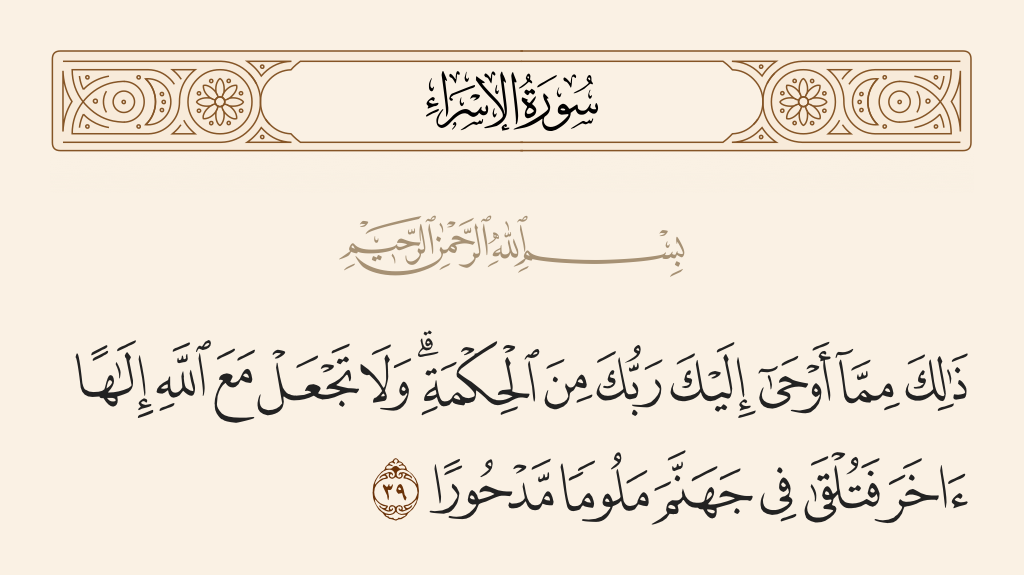 سُورَةُ الإِسْرَاءِ
بِسْمِ ٱللَّهِ ٱلرَّحْمَٰنِ ٱلرَّحِيمِ
ذَٰلِكَ مِمَّآ أَوْحَىٰٓ إِلَيْكَ رَبُّكَ مِنَ ٱلْحِكْمَةِ ۗ وَلَا تَجْعَلْ مَعَ ٱللَّهِ إِلَـٰهًا
ءَاخَرَ فَتُلْقَىٰ فِى جَهَنَّمَ مَلُومًا مَّدْحُورًا ٣٩